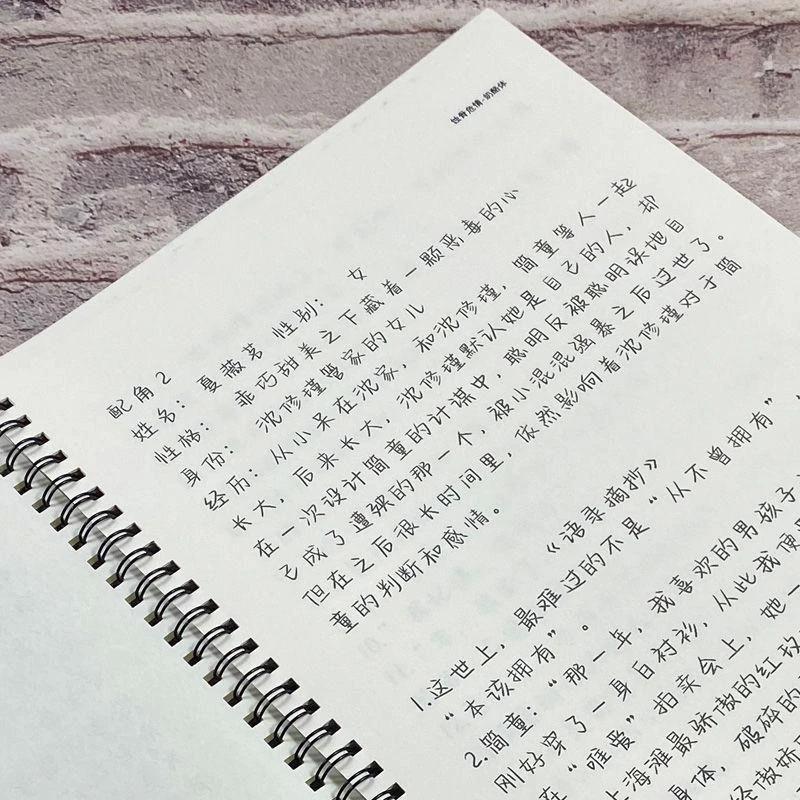 蚀骨危情-奶酪体
配角2
姓名：夏薇茗 性别：女
性格：乖巧甜美之下藏着一颗恶毒的心
身份：沈修瑾管家的女儿
经历：从小呆在沈家，和沈修瑾，简童等人一起
长大，后来长大，沈修瑾默认她是自己的人，却
在一次设计简童的计谋中，聪明反被聪明误地自
己成了遭殃的那一个，被小混混强暴之后过世了。
但在之后很长时间里，依然影响着沈修瑾对于简
童的判断和感情。
《语录摘抄》
1.这世上，最难过的不是“从不曾拥有”
“本该拥有”。
2.简童：“那一年，我喜欢的男孩子
刚好穿了一身白衬衫，从此我便
在“唯爱”拍卖会上，她一
上海滩最骄傲的红玫
身体，破碎的
经傲娇